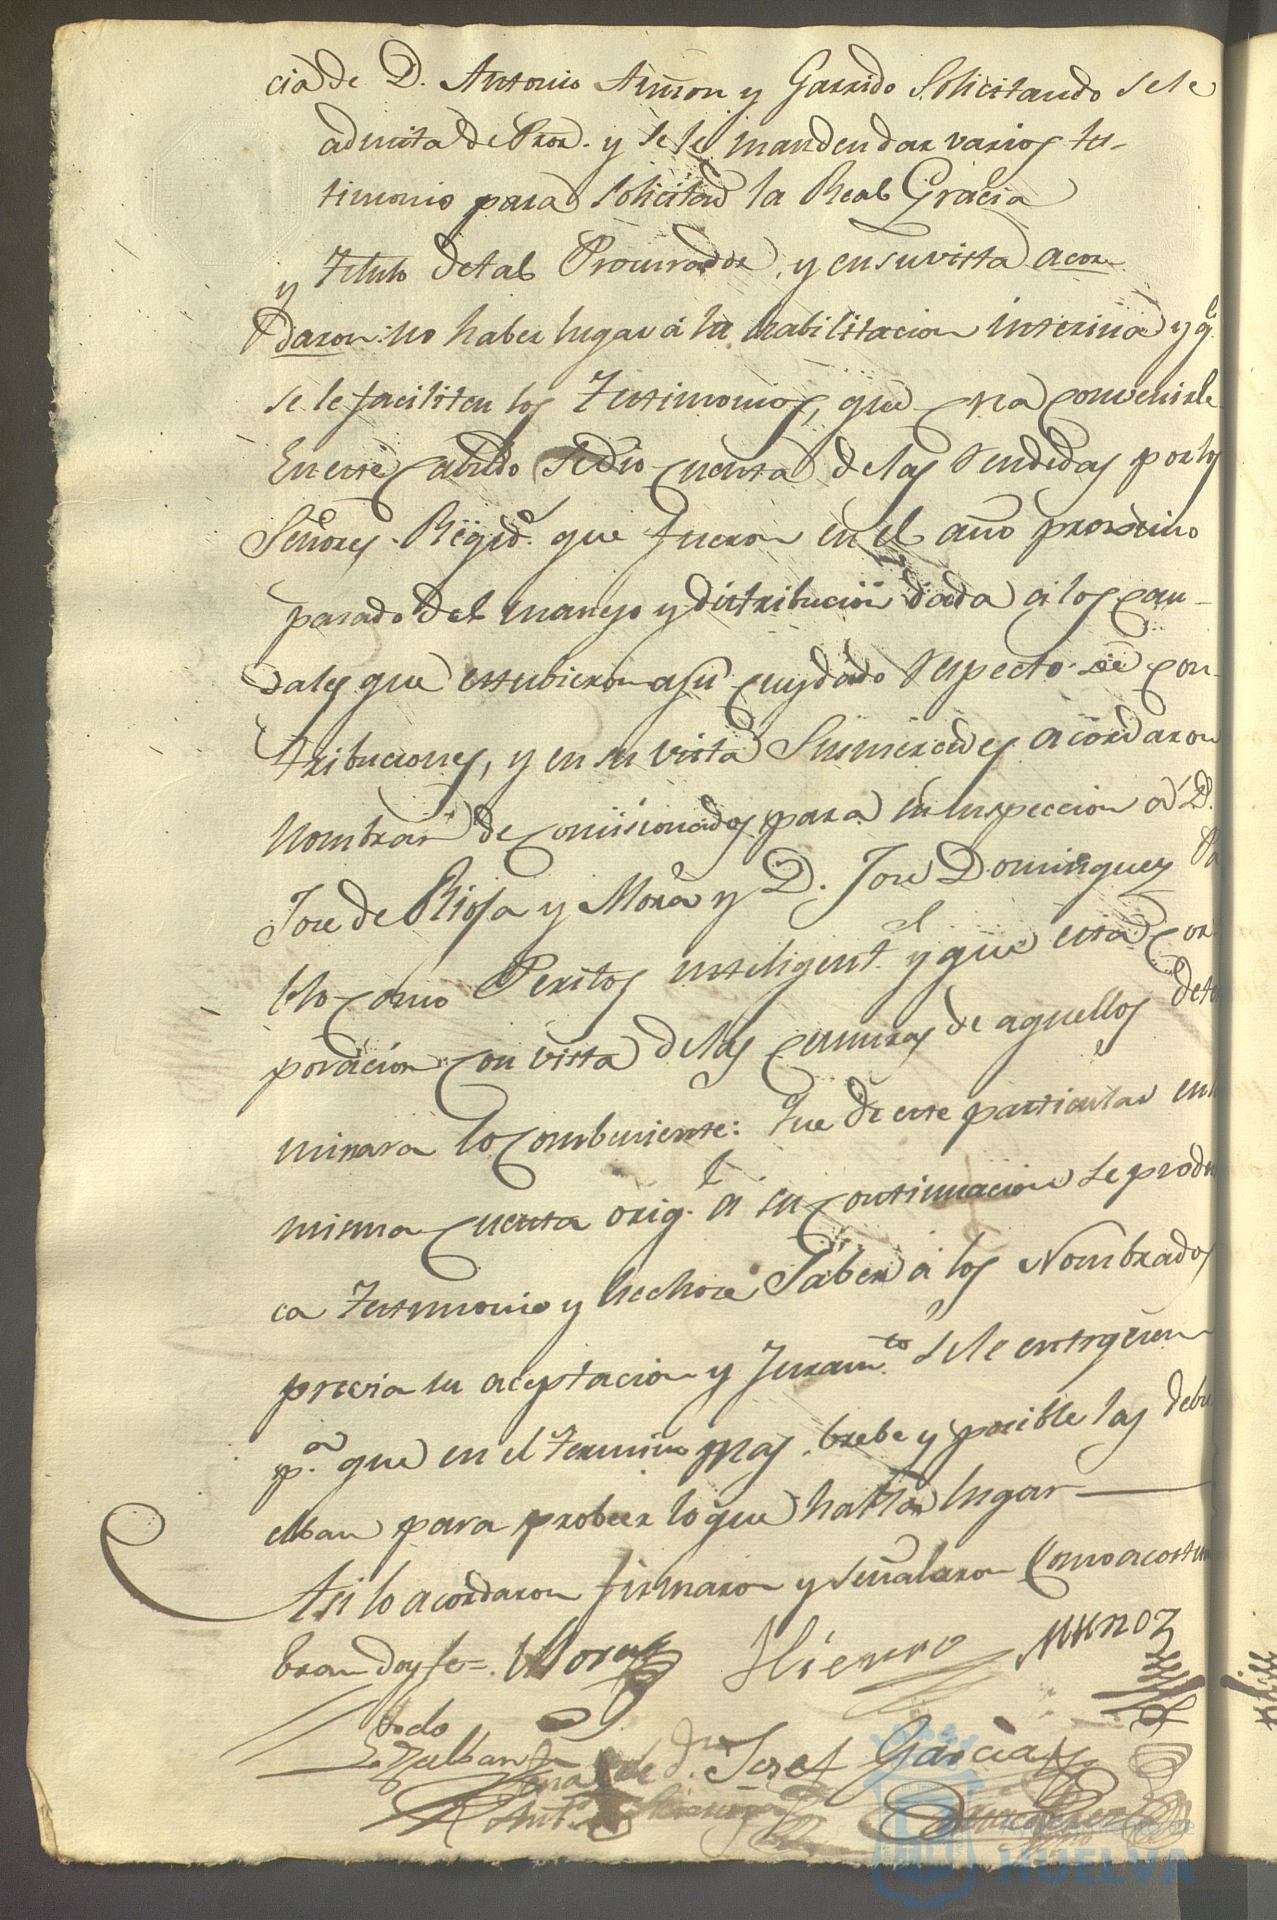 cia de D. Antonio Aunon y Garrido Solicitando se le
admita de Pror. y se le manden dar varios tes-
timonio para Solicitar la Real Gracia
y Titulo de tal Procurador, y en su vista acor
daron: no haber lugar á la habilitacion interina y q.e
se le faciliten los Testimonios, que crea convenirle
En este cabildo se dio cuenta de las rendidas por los
Señores Regid.s que fueron en el año proximo
pasado del manejo y distribucion dada a los cau-
dales que estubieron a su cuydado respecto de con-
tribuciones, y en su vista Sus mercedes acordaron
Nombrar de comisionados para su inspeccion a D.
Jose de Rioja y Mora y D. Jose Dominguez Pa
blo como Peritos inteligent.s y que esta cor
poracion con vista de las censuras de aquellos deter
minara lo combeniente: Que de este particular en la
misma cuenta orig.l á su continuacion se produz
ca Testimonio y hechose Saber a los Nombrados
previa su aceptacion y Juram.to se le entreguen
p.a que en el termino mas brebe y posible las debu
elban para probeer lo que hallan lugar
Asi lo acordaron firmaron y señalaron como acostum
bran doy fe=. Mora Hierro Muñoz
Señal de d.n Josef Garcia
Ant.o
HUELVA